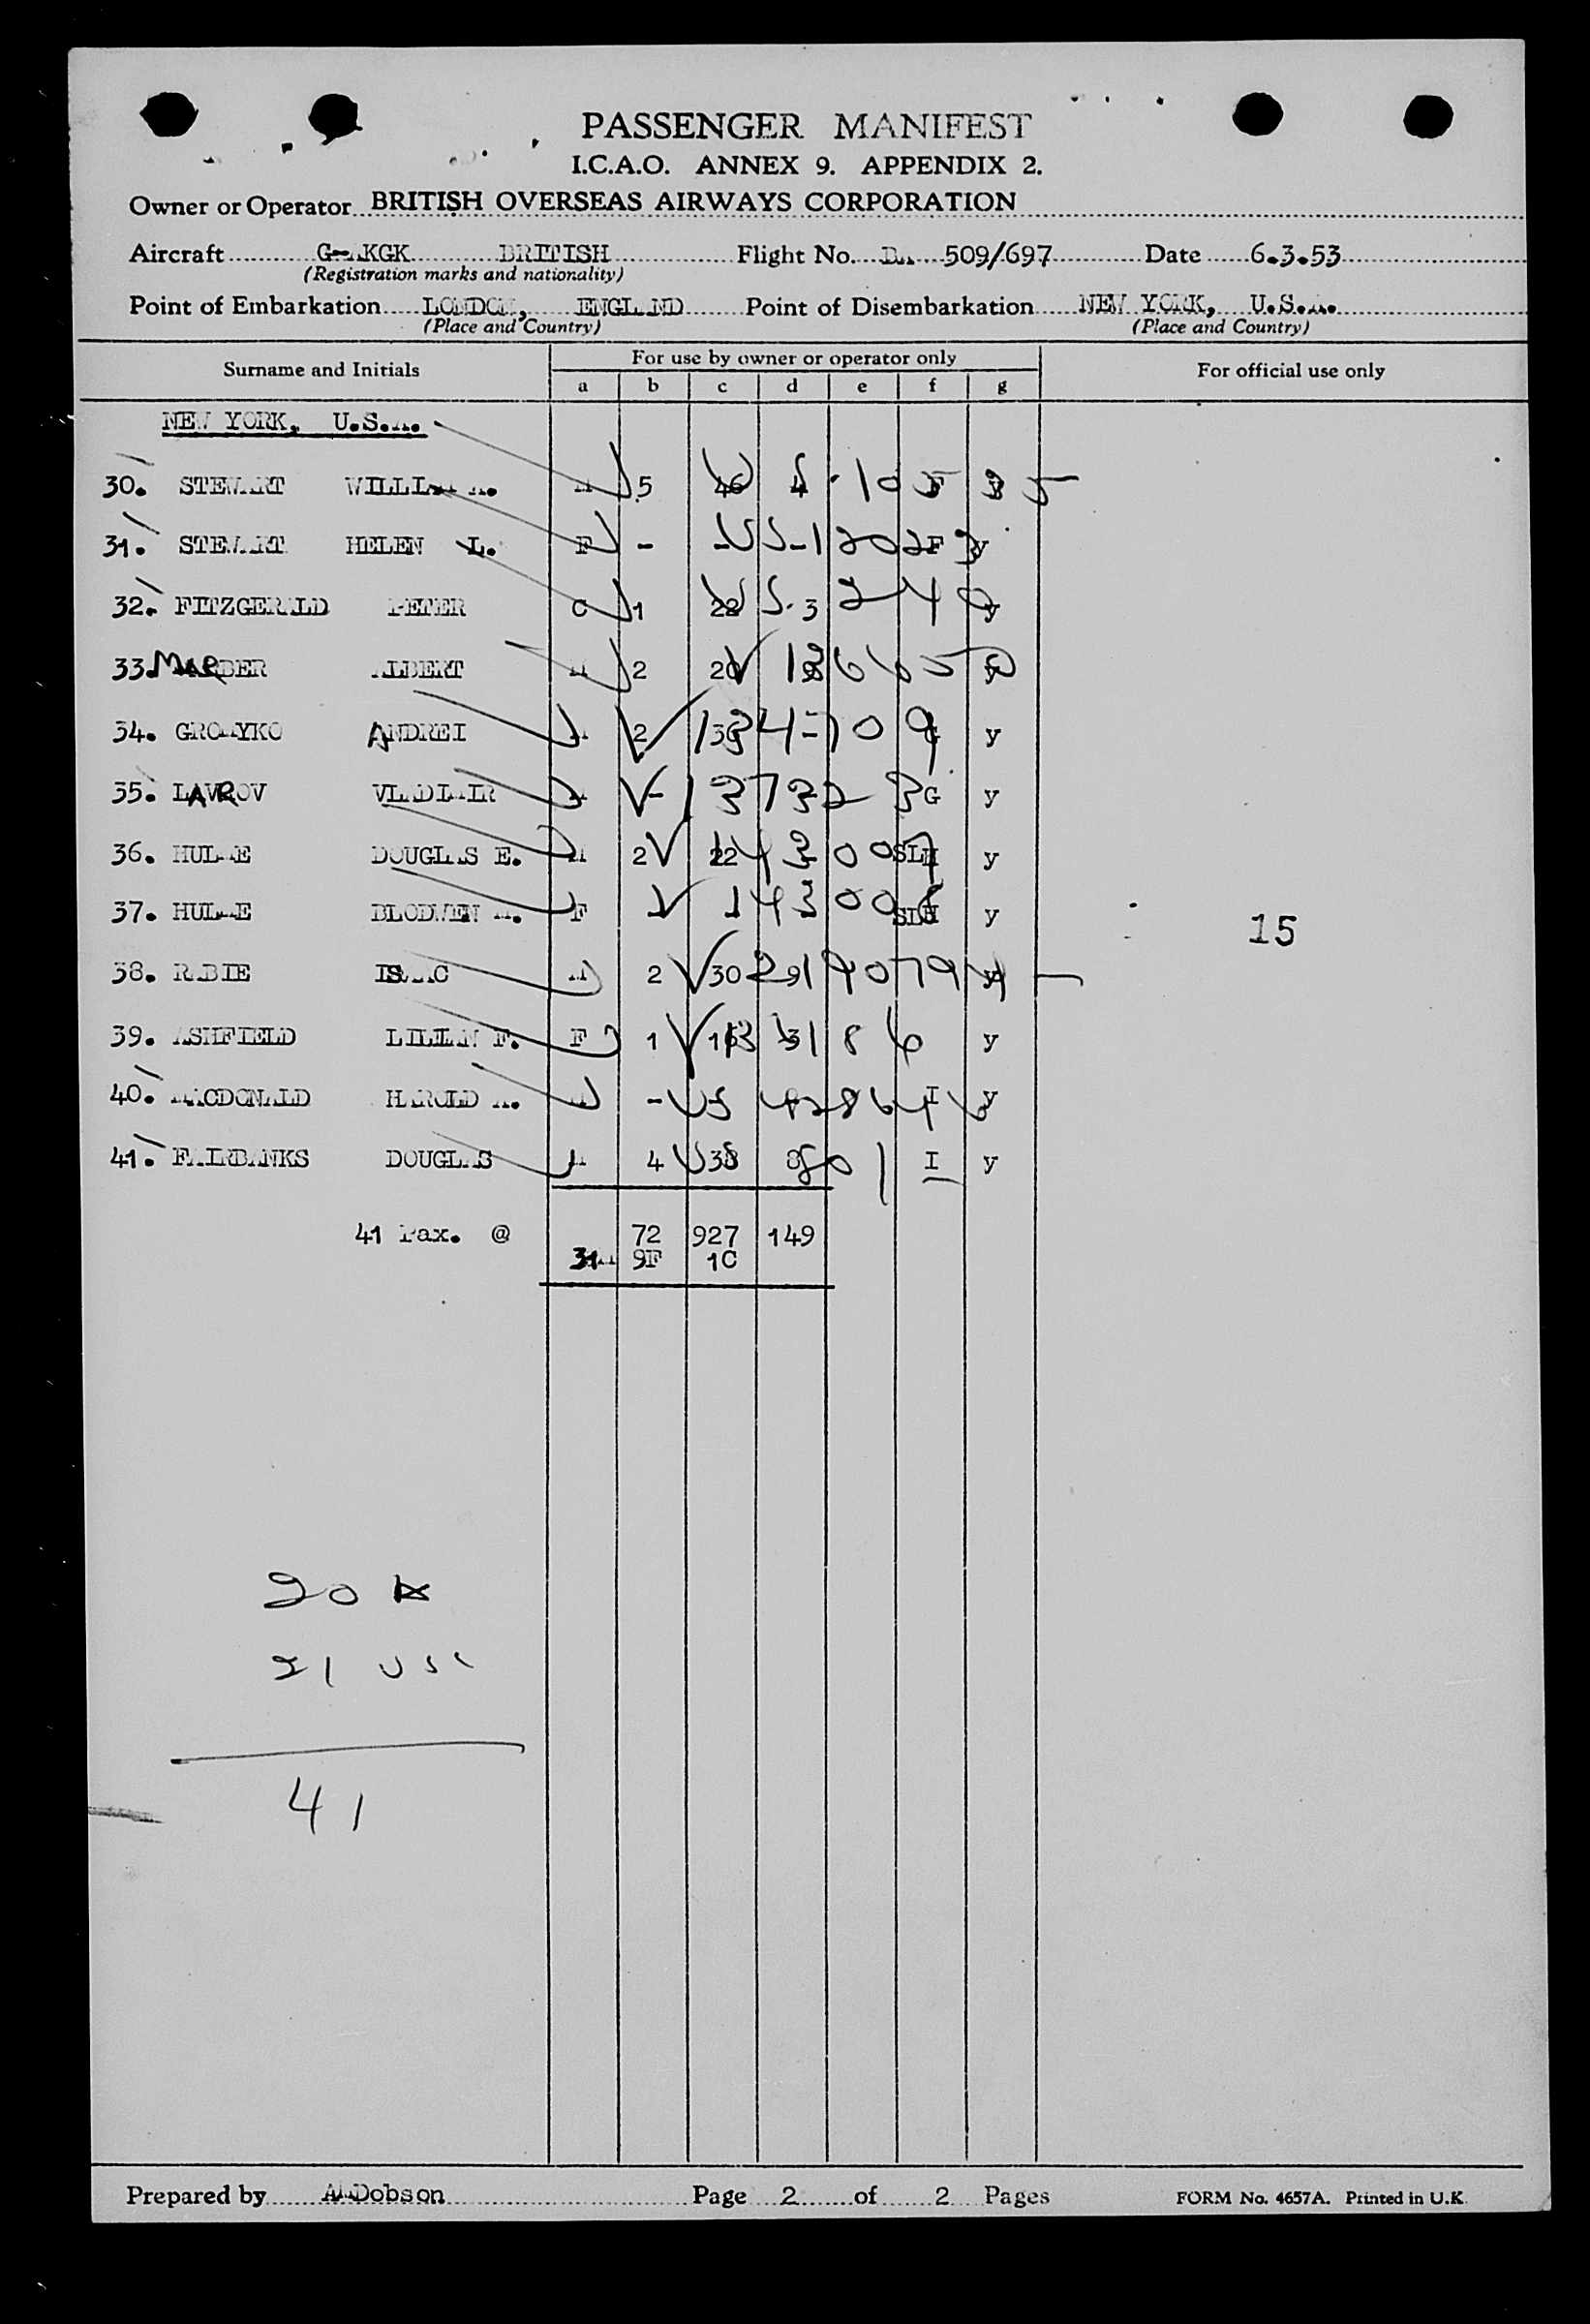 PASSENGER MANIFEST
I.C.A.O. ANNEX 9. APPENDIX 2.
Owner or Operator BRITISH OVERSEAS AIRWAYS CORPORATION
Aircraft G-AKGK BRITISH Flight No. 509/697 Date 6.3.53
(Registration marks and nationality)
Point of Embarkation LONDON, ENGLAND Point of Disembarkation NEW YORK, U.S.A.
(Place and Country) (Place and Country)
Surname and Initials For use by owner or operator only For official use only
a b c d e f g
NEW YORK, U.S.A.
30. STEWART WILLIAM A. M 5 46
31. STEWART HELEN L. F - - F y
32. FITZGERALD PETER C 1 22 3
33. MARBER ALBERT M 2 20
34. GROMYKO ANDREI M 2 y
35. LAVROV VLADIMIR M - G y
36. HULME DOUGLAS E. M 2 22 y
37. HULME BLODWEN M. F y
38. RABIE ISAAC M 2 30
39. ASHFIELD LILIAN F. F 1 y
40. MACDONALD HAROLD A. M - I y
41. FAIRBANKS DOUGLAS M 4 38 I y
15
41 Pax. @ 72 927 149
31M 9F 1C
20
21 USC
41
Prepared by AMDobson Page 2 of 2 Pages FORM No. 4657A. Printed in U.K.